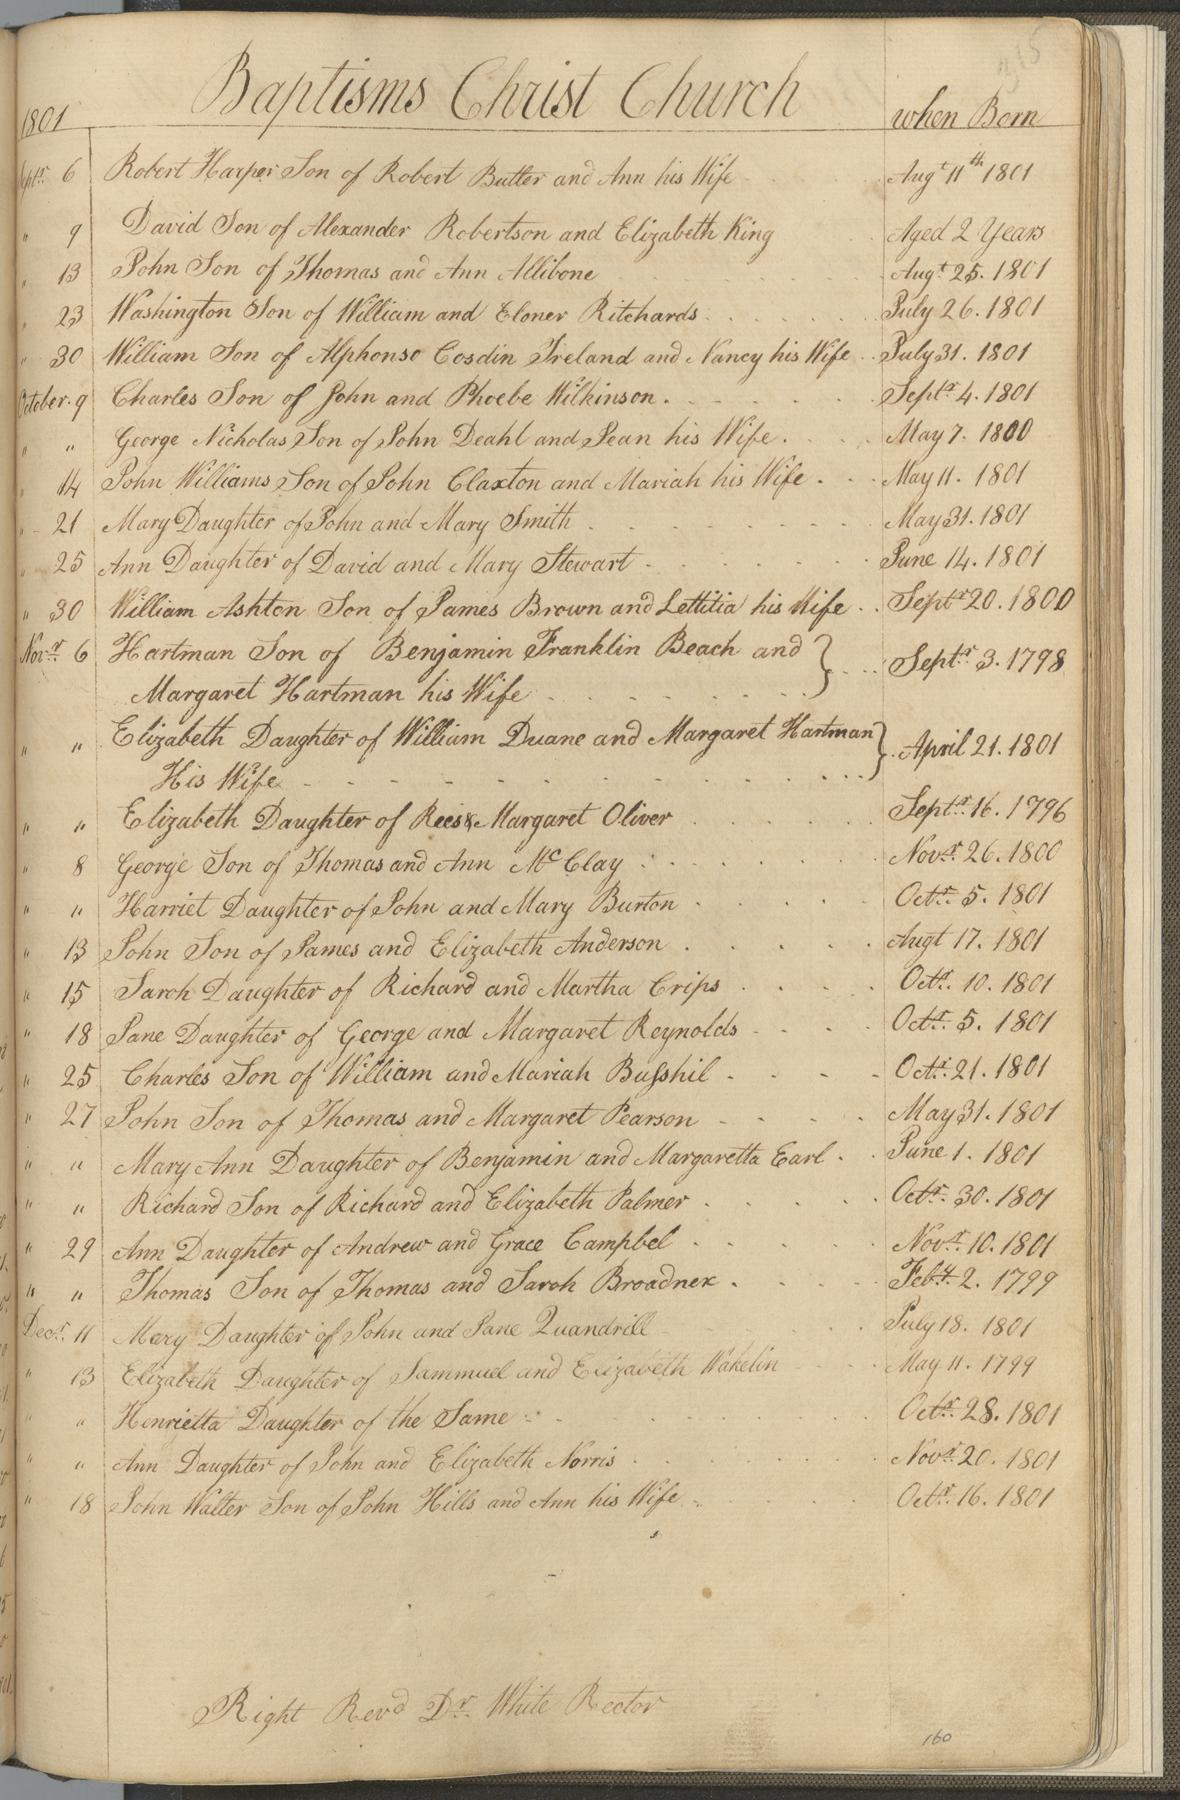 315
Baptisms Christ Church
1801 when Born
Septr. 6 Robert Harper Son of Robert Butler and Ann his Wife Augt 11th 1801
" 9 David Son of Alexander Robertson and Elizabeth King Aged 2 Years
" 13 John Son of Thomas and Ann Allibone Augt. 25. 1801
" 23 Washington Son of William and Eloner Ritchards July 26. 1801
" 30 William Son of Alphonso Cosdin Ireland and Nancy his Wife July 31. 1801
October. 9 Charles Son of John and Phoebe Wilkinson. Septr. 4. 1801
" " George Nicholas Son of John Deahl and Jean his Wife. May 7. 1800
" 14 John Williams Son of John Claxton and Mariah his Wife. May 11. 1801
" 21 Mary Daughter of John and Mary Smith May 31. 1801
" 25 Ann Daughter of David and Mary Stewart June 14. 1801
" 30 William Ashton Son of James Brown and Lettitia his Wife Septr. 20. 1800
Novr. 6 Hartman Son of Benjamin Franklin Beach and } Septr. 3. 1798
Margaret Hartman his Wife
" " Elizabeth Daughter of William Duane and Margaret Hartman } April 21. 1801
His Wife
" " Elizabeth Daughter of Rees & Margaret Oliver Septr. 16. 1796
" 8 George Son of Thomas and Ann McClay Novr. 26. 1800
" " Harriet Daughter of John and Mary Burton Octr. 5. 1801
" 13 John Son of James and Elizabeth Anderson Augt 17. 1801
" 15 Sarah Daughter of Richard and Martha Crips Octr. 10. 1801
" 18 Jane Daughter of George and Margaret Reynolds Octr. 5. 1801
" 25 Charles Son of William and Mariah Bußhil Octr. 21. 1801
" 27 John Son of Thomas and Margaret Pearson May 31. 1801
" " Mary Ann Daughter of Benjamin and Margaretta Earl June 1. 1801
" " Richard Son of Richard and Elizabeth Palmer Octr. 30. 1801
" 29 Ann Daughter of Andrew and Grace Campbel Novr. 10. 1801
" " Thomas Son of Thomas and Sarah Broadnex Feby. 2. 1799
Decr. 11 Mary Daughter of John and Jane Quandrill July 18. 1801
" 13 Elizabeth Daughter of Sammuel and Elizabeth Wakelin May 11. 1799
" " Henrietta Daughter of the Same Octr. 28. 1801
" " Ann Daughter of John and Elizabeth Norris Novr. 20. 1801
" 18 John Walter Son of John Hills and Ann his Wife Octr. 16. 1801
Right Revd Dr. White Rector
160